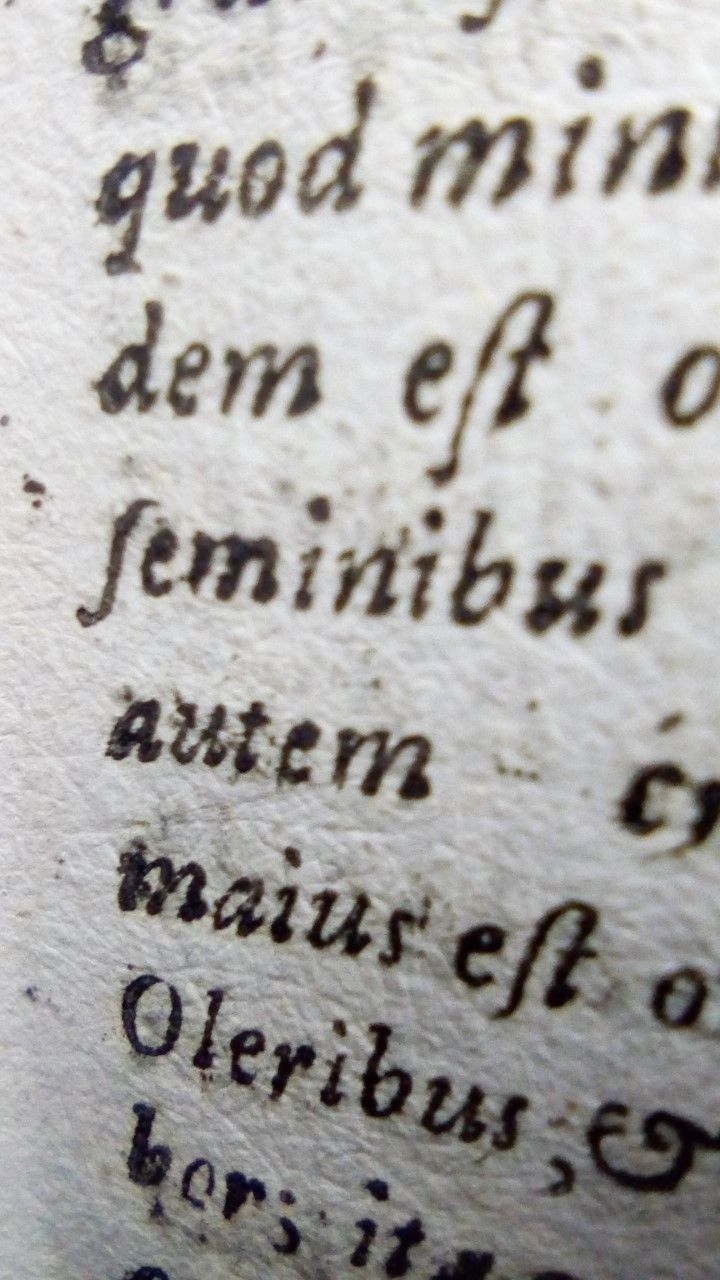 quod mini
dem eſt o
ſeminibus
autem
maius eſt o
Oleribus, &
bor; ita